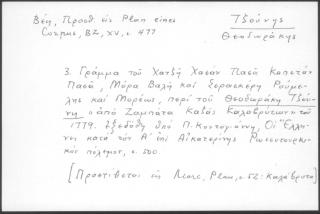 Βέη, Προσθ. εις Plan eines
Corpus, BZ, XV, σ. 477
Τζούνης
Θεοδωράκης
3. Γράμμα τοῦ Χατζῆ Χασάν Πασᾶ Καπετάν
Πασᾶ, Μόρα Βαλῆ καὶ Σερασκέρη Ρούμε-
λης καὶ Μορέως, περὶ τοῦ Θεοδωράκη Τζού-
νη ἀπὸ Σαμπάτα Καζᾶς Καλαβρύτων τοῦ
1779. Ἐξεδόθη ὑπὸ Π. Κοντογιάννη, Οἱ Ἕλλη-
νες κατὰ τὸν Α' ἐπὶ Αἰκατερίνης Ρωσσοτουρκι-
κὸν πόλεμον, σ. 500.
[Προστίθεται εἰς Marc, Plan, σ. 52: Καλάβρυτα]